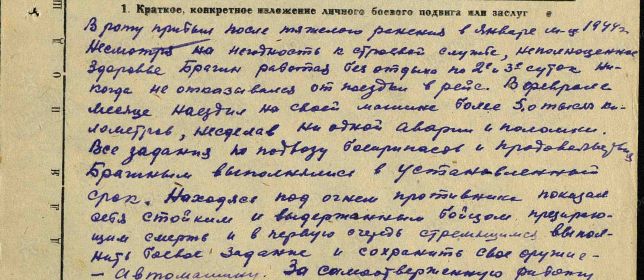 1. Краткое, конкретное изложение личного боевого подвига или заслуг
В роту прибыл после тяжелого ранения в январе м-ц 1944 г.
Несмотря на негодность к строевой службе, неполноценное
здоровье Брагин работая без отдыха по 2е и 3е суток ни-
когда не отказывался от поездки в рейс. В феврале
месяце наездил на своей машине более 5,0 тысяч ки-
лометров, несделав ни одной аварии и поломки.
Все задания по подвозу боеприпасов и продовольствия
Брагиным выполнялись в установленный
срок. Находясь под огнем противника показал
себя стойким и выдержанным бойцом, презираю-
щим смерть и в первую очередь стремящимся выпол-
нить боевое задание и сохранить свое оружие-
- автомашину. За самоотверженную работу